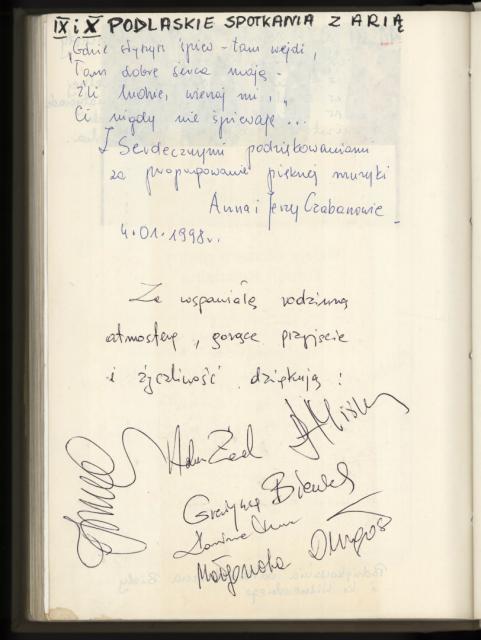 IX i X PODLASKIE SPOTKANIA Z ARIĄ
„Gdzie słyszysz śpiew – tam wejdź,
Tam dobre serca mają –
Źli ludzie, wierzaj mi,
Ci nigdy nie śpiewają...
Z Serdecznymi podziękowaniami
za propagowanie pięknej muzyki
Anna i Jerzy Czabanowie
4.01.1998r.
Za wspaniałą rodzinną
atmosferę, gorące przyjęcie
i życzliwość dziękują:
Adam Zd

Grażyna
Małgorzata Długosz